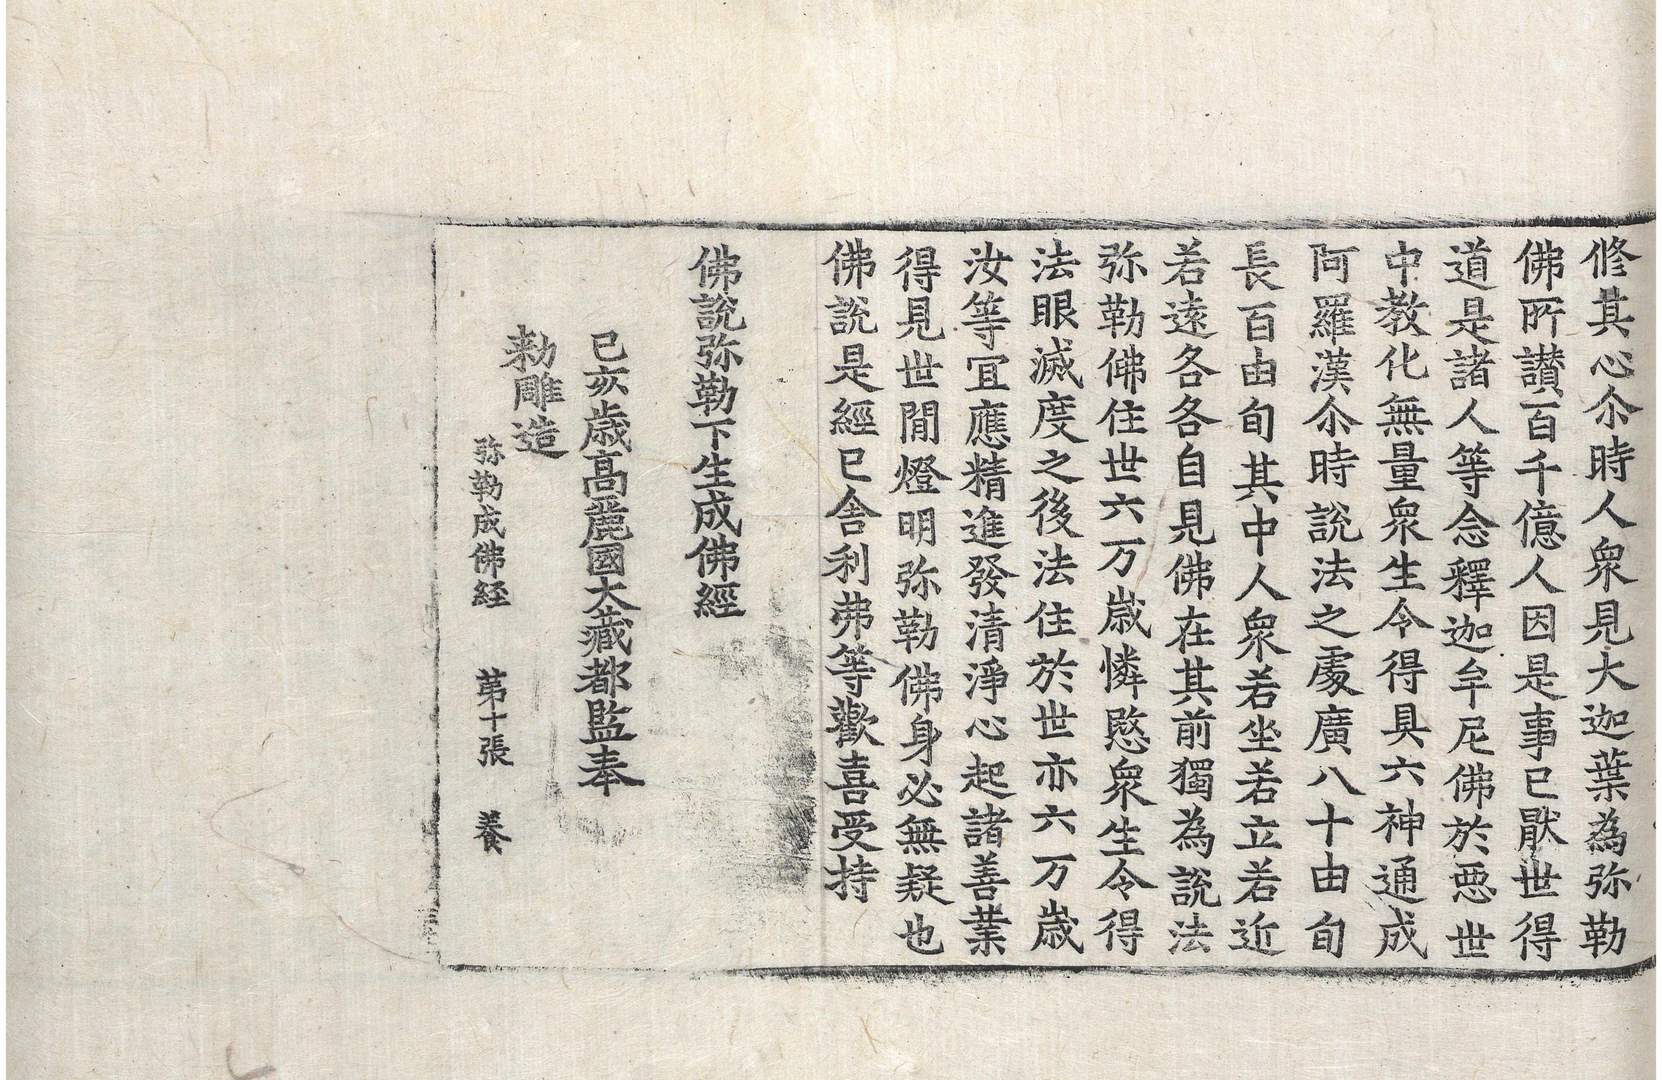 修其心尒時人衆見大迦葉為弥勒
佛所讃百千億人因是事已猒世得
道是諸人等念釋迦牟尼佛於惡世
中教化無量衆生令得具六神通成
阿羅漢尒時說法之處廣八十由旬
長百由旬其中人衆若坐若立若近
若遠各各自見佛在其前獨為說法
弥勒佛住世六万歲憐愍衆生令得
法眼滅度之後法住於世亦六万歲
汝等冝應精進發清淨心起諸善業
得見世閒燈明弥勒佛身必無疑也
佛說是經已舍利弗等歡喜受持
佛說弥勒下生成佛經
己亥歲高麗國大藏都監奉
勑雕造
弥勒成佛経 第十張 養